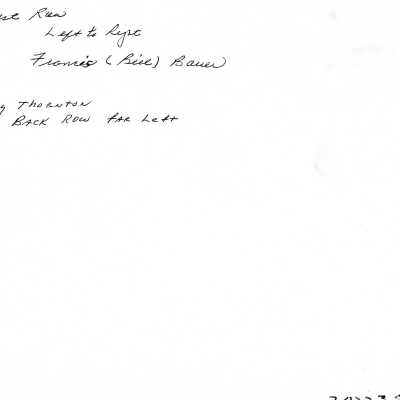 Row
Left to Ryte
Francis (Bill) Bauer
Thornton
Back Row far Left